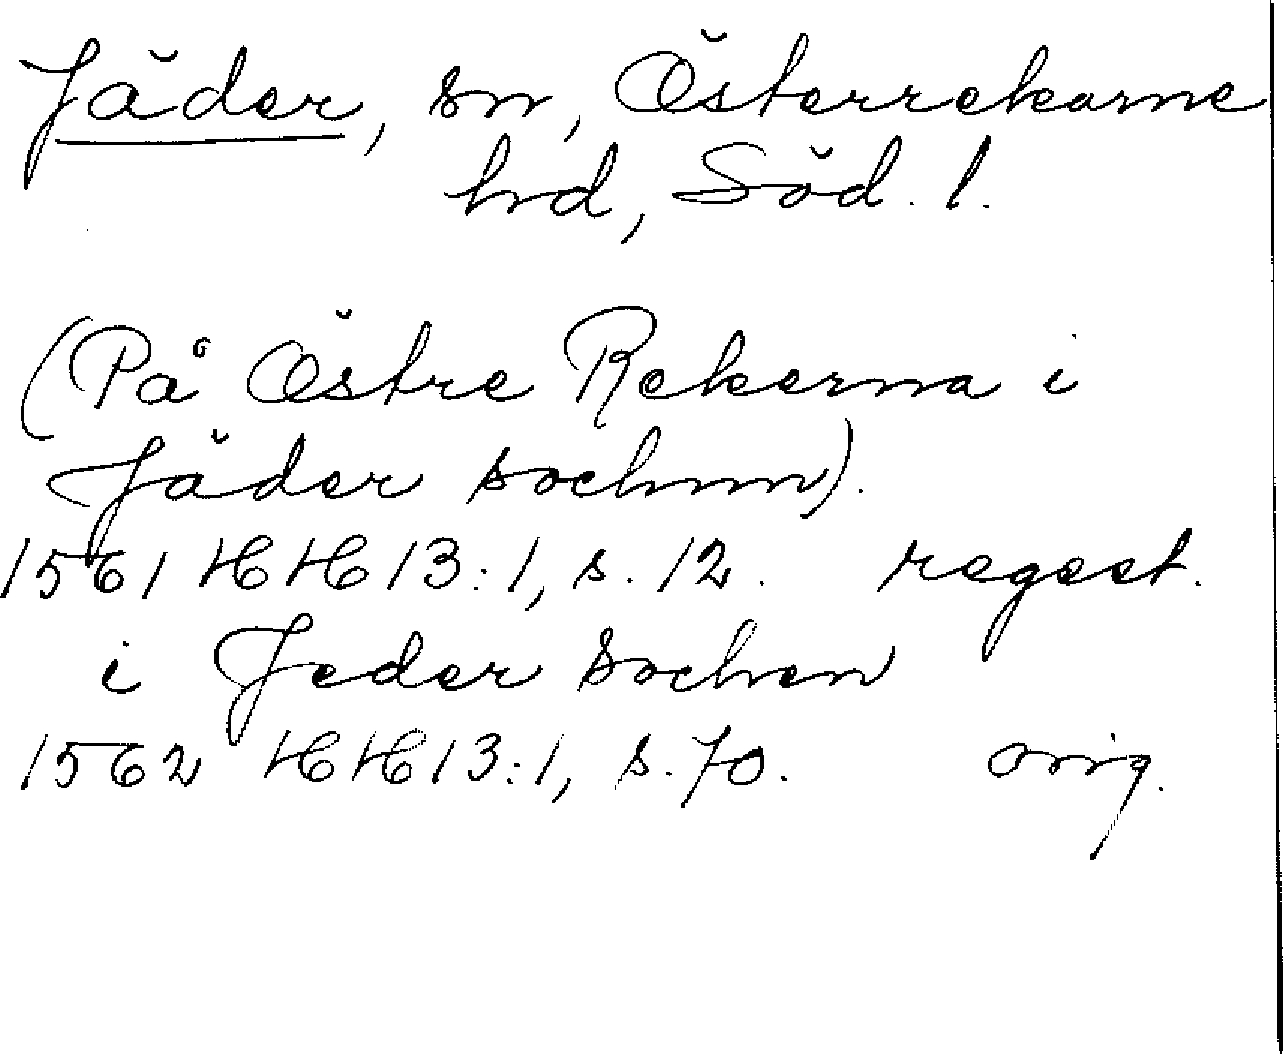 Jäder, sn, Österrekarne
hd, Söd. l.
(På Östre Rekerna i
Jäder sochnn).
1561 HH 13:1, s. 12. regest.
i Jeder sochen
1562 HH 13:1, s. 70. orig.